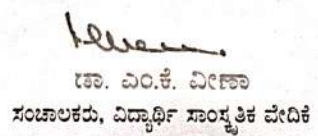 ಡಾ. ಎಂ.ಕೆ. ವೀಣಾ
ಸಂಚಾಲಕರು, ವಿದ್ಯಾರ್ಥಿ ಸಾಂಸ್ಕೃತಿಕ ವೇದಿಕೆ